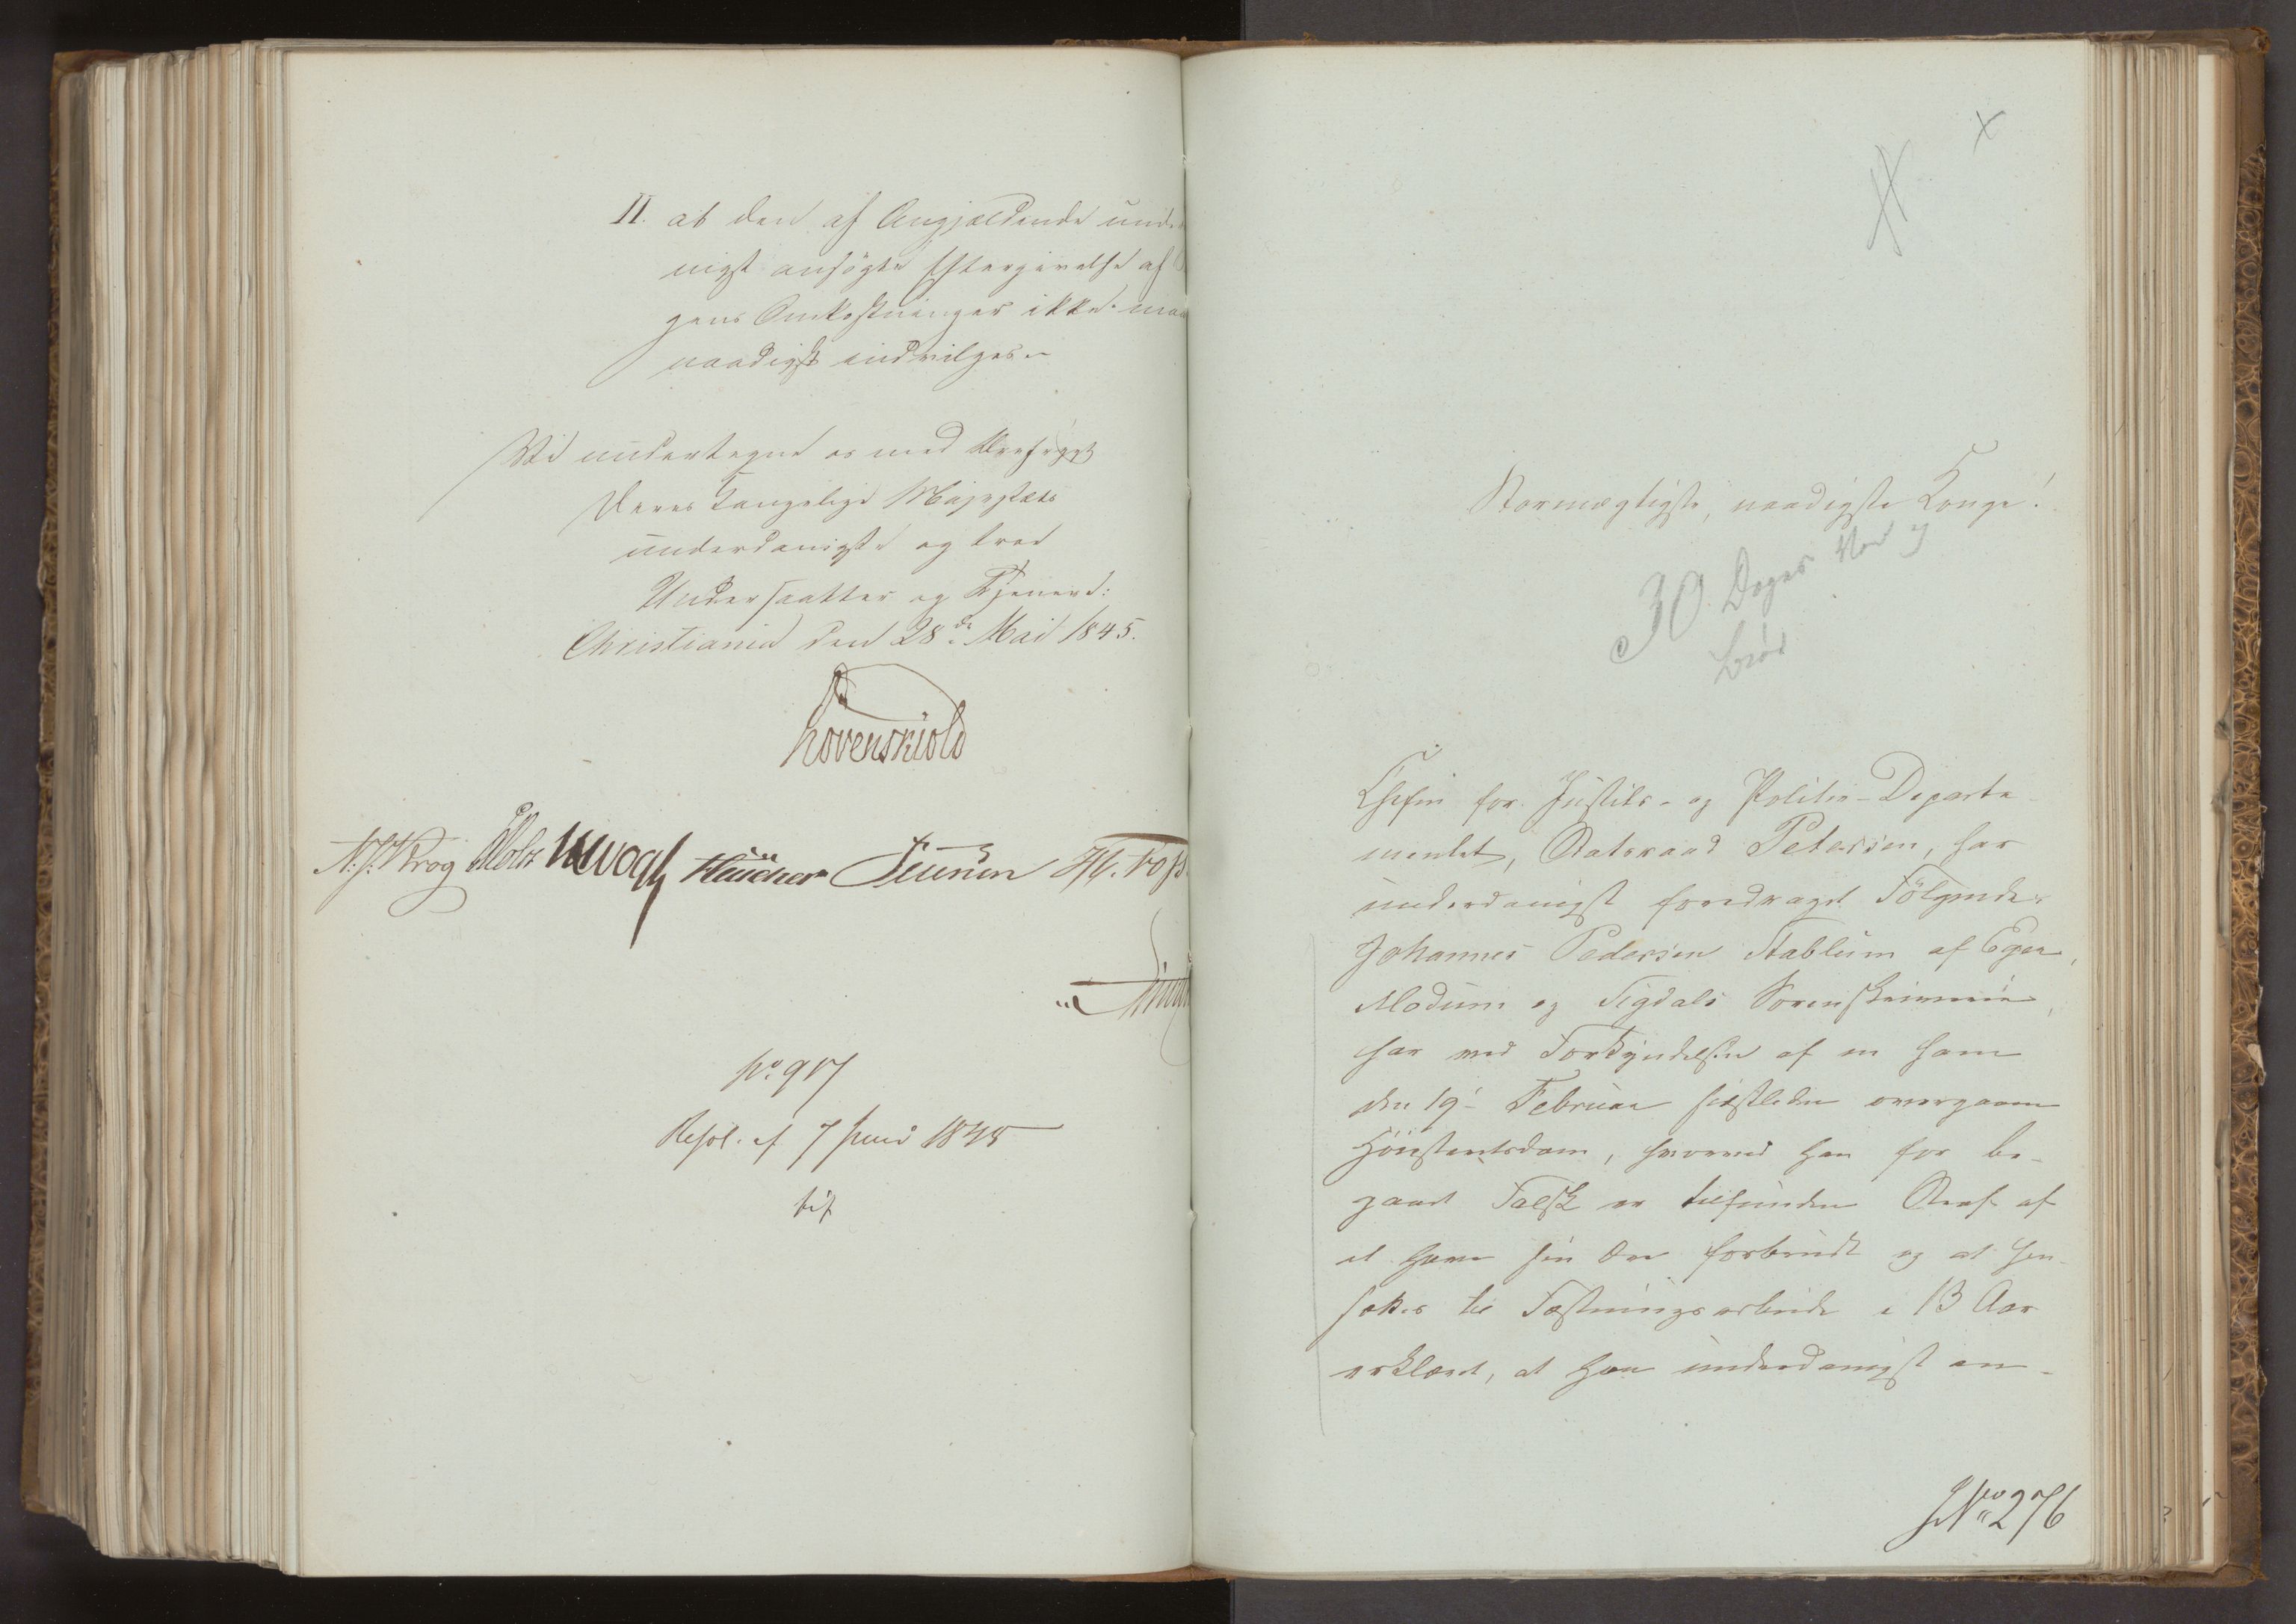 II. at den af Angjældende unde
nigst ansøgte Eftergivelse af
gens Omkostninger ikke maa
naadigst indvilges.
Vi undertegne os med Ærefrygt
Deres Kongelige Majestæts
underdanigste og troe
Undersaatter og Tjenere:
Christiania den 28de Mai 1845.
Løvenskiold
N. J. Krog Motz Vogt Hauchen H. Foss
No 917
Resol. af 7 Juni 1845
X
Stormægtigste, naadigste Konge!
30 Dages Vand og
brød
Chefen for Justits- og Politie-Departe
mentet, Statsraad Petersen, har
underdanigst foredraget Følgende:
Johannes Pedersen Stablum af Eger,
Modum og Sigdals Sorenskriverie,
har ved Forkyndelsen af en ham
den 19 Februar sidstleden overgaaen
Høiesteretsdom, hvorved han for be-
gaaet Falsk er tilfunden Straf af
at have sin Ære forbrudt og at hen-
sættes til Fæstningsarbeide i 13 Aar
erklæret, at han underdanigst an-
JNo 276